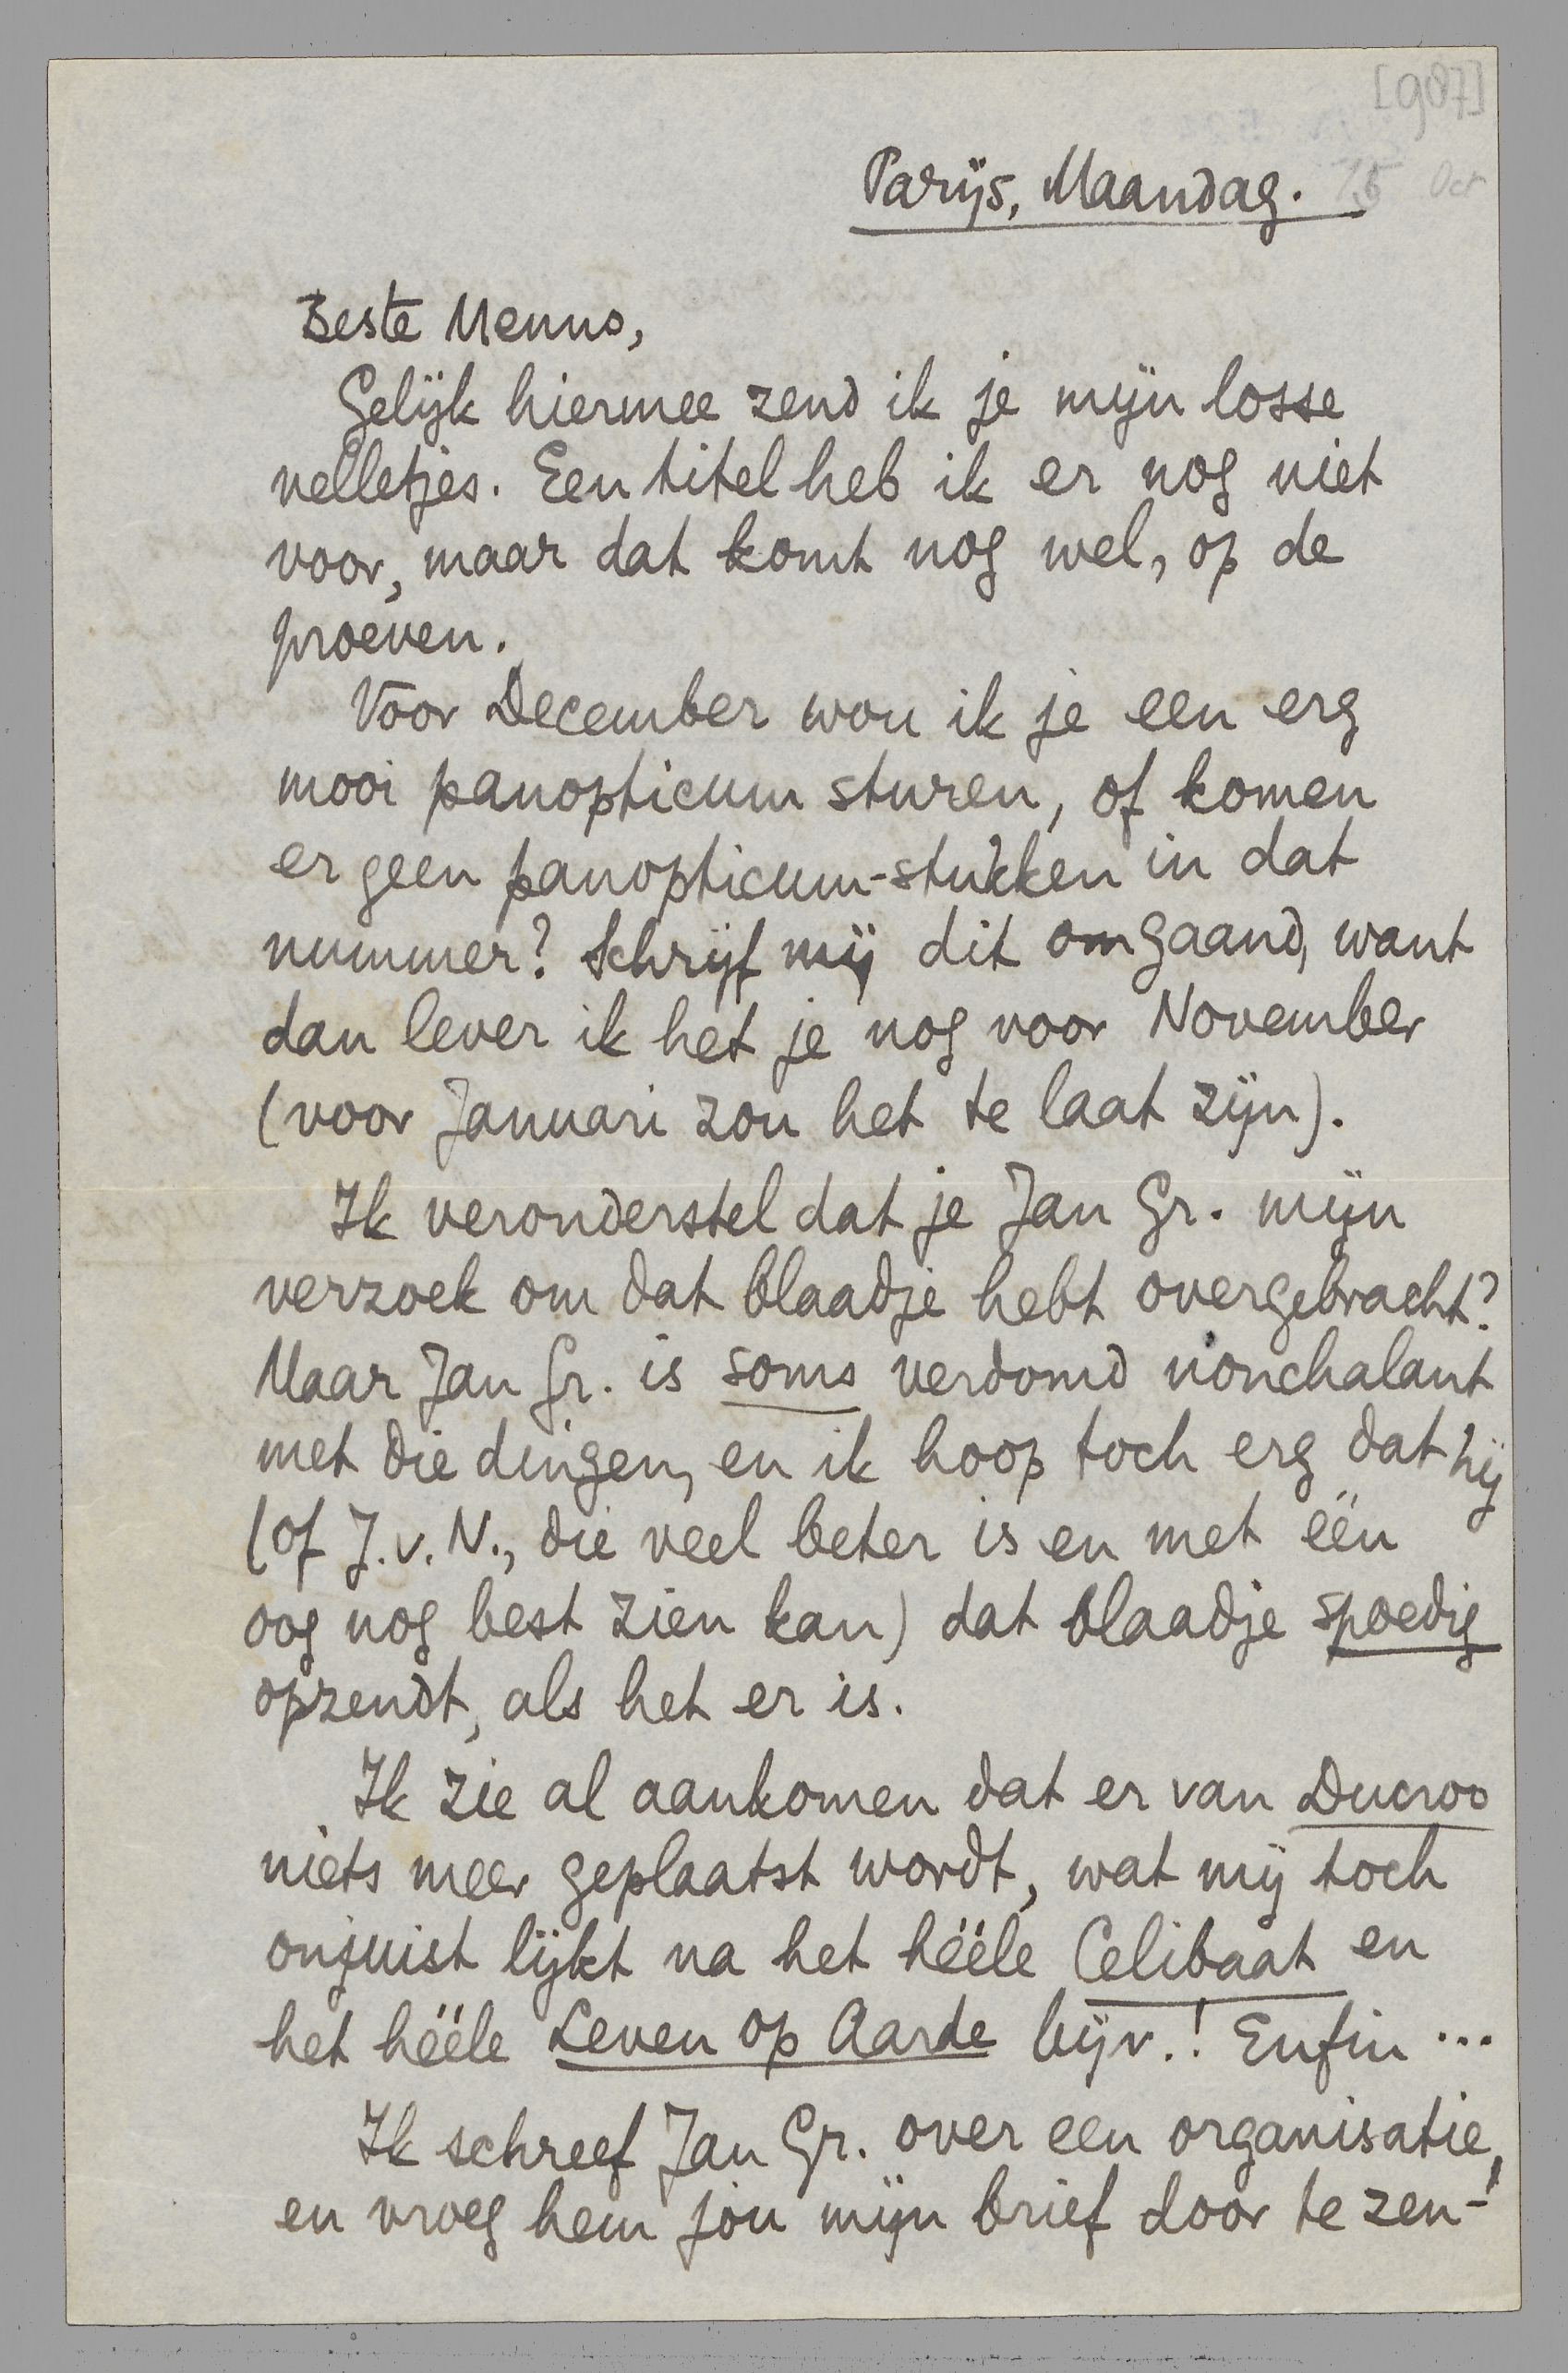 [987]
Parijs, Maandag. 15 Oct
Beste Menno,
Gelijk hiermee zend ik je mijn losse
velletjes. Een titel heb ik er nog niet
voor, maar dat komt nog wel, op de
proeven.
Voor December wou ik je een erg
mooi panopticum sturen, of komen
er geen panopticum-stukken in dat
nummer? Schrijf mij dit omgaand, want
dan lever ik het je nog voor November
(voor Januari zou het te laat zijn).
Ik veronderstel dat je Jan Gr. mijn
verzoek om dat blaadje hebt overgebracht?
Maar Jan Gr. is soms verdomd nonchalant
met die dingen, en ik hoop toch erg dat hij
(of J.v.N., die veel beter is en met één
oog nog best zien kan) dat blaadje spoedig
opzendt, als het er is.
Ik zie al aankomen dat er van Ducroo
niets meer geplaatst wordt, wat mij toch
onjuist lijkt na het hééle Celibaat en
het hééle Leven op Aarde bijv.! Enfin ...
Ik schreef Jan Gr. over een organisatie,
en vroeg hem jou mijn brief door te zen-